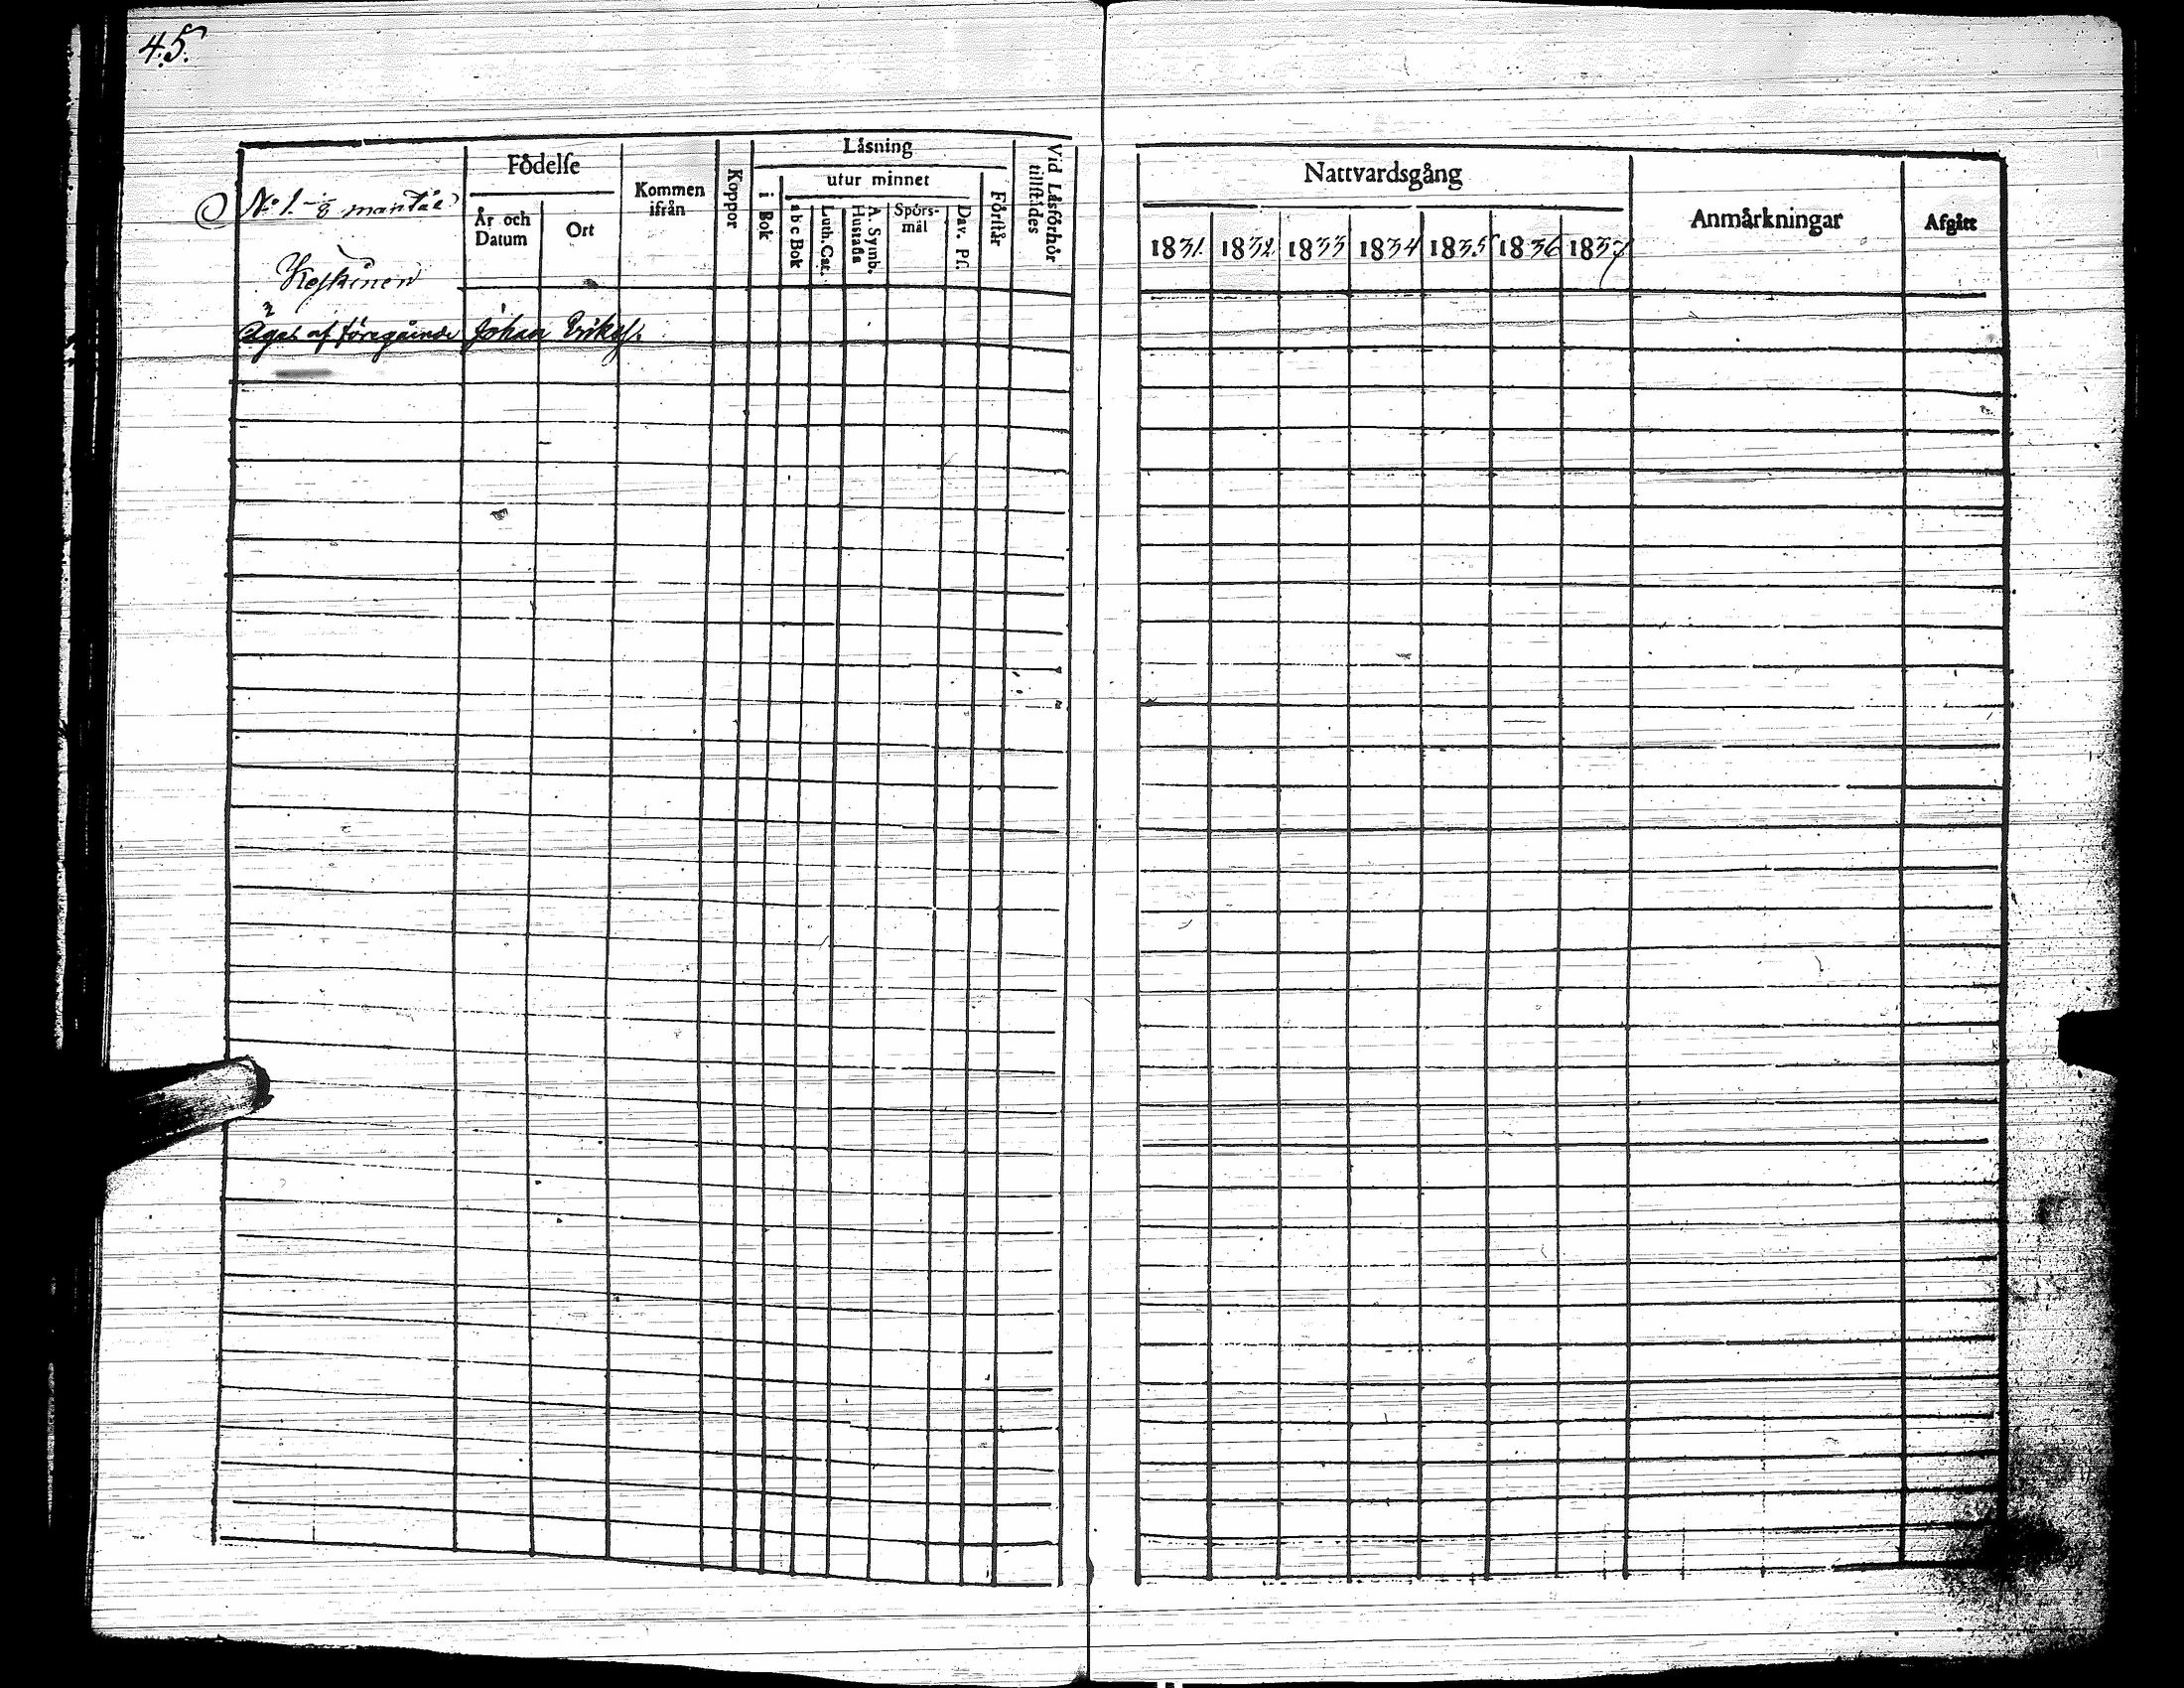 45.
No 1. 1/8 mantal
Keskinen
Äges af föregående Johan Eriks.
Födelse
År och Datum
Ort
Kommen ifrån
Koppor
Läsning
i Bok
utur minnet
a b c Bok
Luth. Cat.
A. Symb. Hustafla
Spörs-mål
Dav. Ps.
Förstår
Vid Läsförhör tillstädes
Nattvardsgång
1831. 1832. 1833 1834 1835 1836 1837
Anmärkningar
Afgått